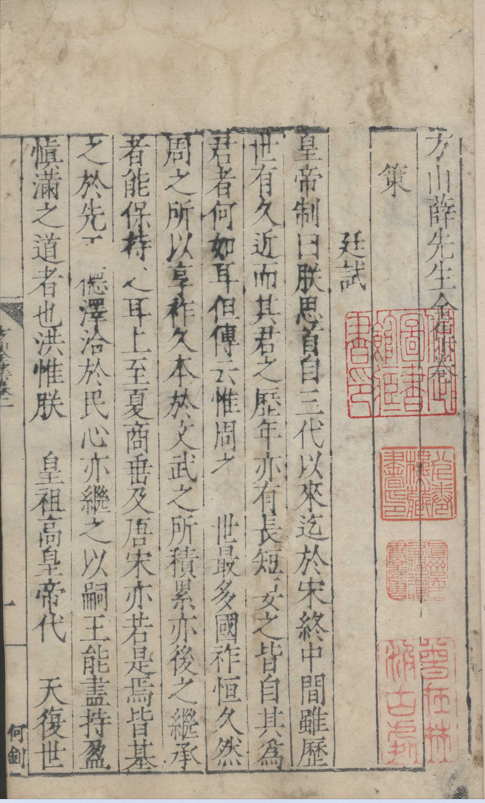 方山薛先生全集卷
策
廷試
皇帝制曰朕思首自三代以來迄於宋終中間雖歷
世有久近而其君之歷年亦有長短要之皆自其為
君者何如耳但傳云惟周之 世最多國祚恒久然
周之所以享祚久本於文武之所積累亦後之繼承
者能保持之耳上至夏商垂及唐宋亦若是焉皆基
之於先 德澤洽於民心亦繼之以嗣王能盡持盈
慎滿之道者也洪惟朕 皇祖高皇帝代 天復世
一
何鈏